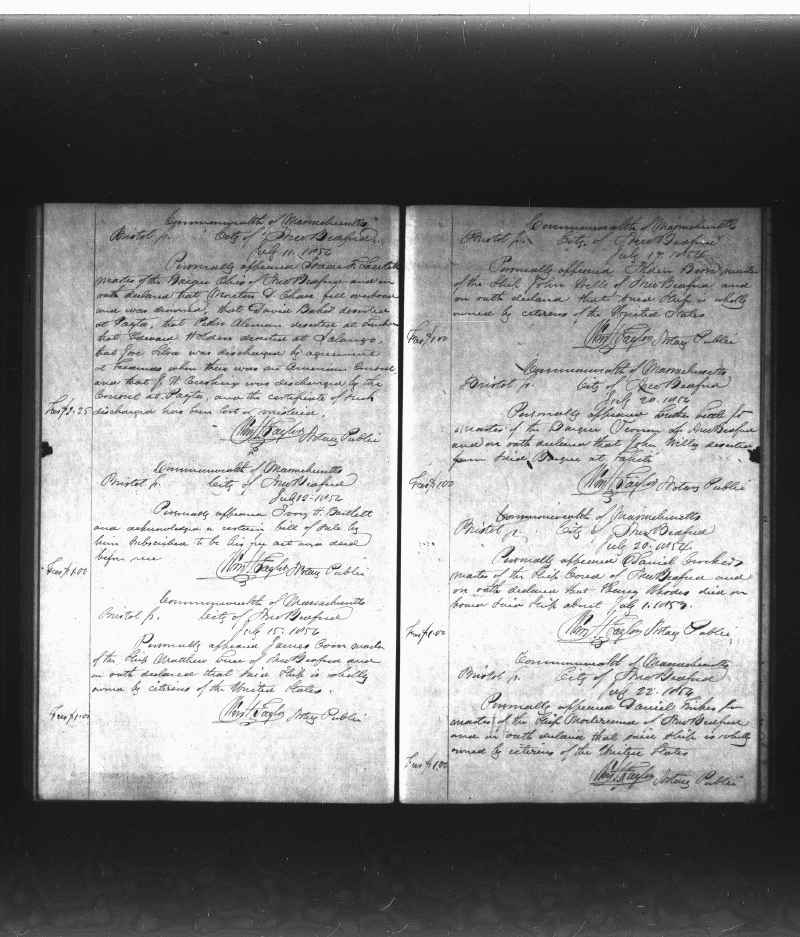 Commonwealth of Massachusetts
Bristol ss. City of New Bedford
July 11. 1854
Personally appeared
master of the Barque of New Bedford and on
oath declared that Moreton D. Chase fell overboard
and was drowned, that David Baker deserted
at Payta, that Pedro Aleman deserted at Tumbes
that Edward Holden deserted at Salango,
that Joe Silva was discharged by agreement
at where there was no American Consul,
and that J. W. Cushing was discharged by the
Consul at Payta, and the certificate of such
Fees $2.25 discharged has been lost or mislaid.
Wm H. Taylor Notary Public
Commonwealth of Massachusetts
Bristol ss. City of New Bedford
July 12. 1854
Personally appeared Ivory H. Bartlett
and acknowledged a certain bill of sale by
him subscribed to be his free act and deed
before me
Fees $1.00 Wm H. Taylor Notary Public
Commonwealth of Massachusetts
Bristol ss. City of New Bedford
July 15. 1854
Personally appeared James Coon master
of the Ship Matthew Luce of New Bedford and
on oath declared that said Ship is wholly
owned by citizens of the United States.
Fees $1.00 Wm H. Taylor Notary Public
Commonwealth of Massachusetts
Bristol ss. City of New Bedford
July 17. 1854
Personally appeared master
of the Ship John Wells of New Bedford and
on oath declared that said Ship is wholly
owned by citizens of the United States
Fees $1.00 Wm H. Taylor Notary Public
Commonwealth of Massachusetts
Bristol ss. City of New Bedford
July 20. 1854
Personally appeared
master of the Barque of New Bedford
and on oath declared that John Wills deserted
from said Barque at Tahiti
Fees $1.00 Wm H. Taylor Notary Public
Commonwealth of Massachusetts
Bristol ss. City of New Bedford
July 20. 1854
Personally appeared Daniel Crocker
master of the Ship of New Bedford and
on oath declared that Henry Rhodes died on
board said Ship about July 1. 1853.
Fees $1.00 Wm H. Taylor Notary Public
Commonwealth of Massachusetts
Bristol ss. City of New Bedford
July 22. 1854
Personally appeared Daniel
master of the Ship of New Bedford
and on oath declared that said Ship is wholly
owned by citizens of the United States
Fees $1.00 Wm H. Taylor Notary Public